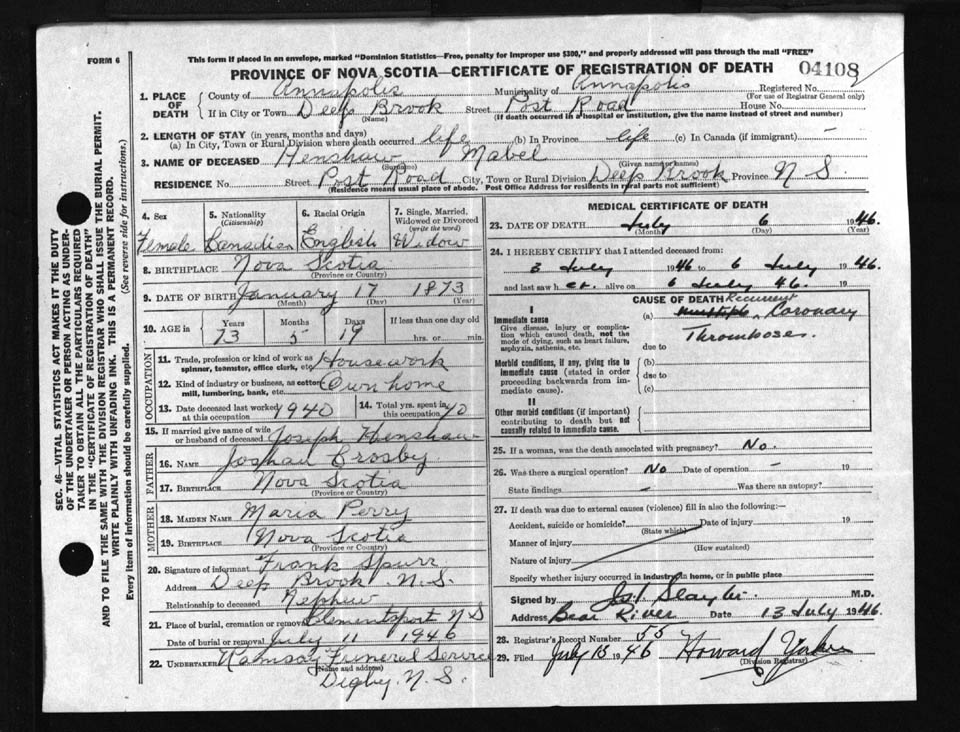 FORM 6
This form if placed in an envelope, marked "Dominion Statistics—Free, penalty for improper use $300," and properly addressed will pass through the mail "FREE"
PROVINCE OF NOVA SCOTIA—CERTIFICATE OF REGISTRATION OF DEATH 04108
1. PLACE OF DEATH
County of Annapolis Municipality of Annapolis Registered No.
(For use of Registrar General only)
If in City or Town Deep Brook Street Post Road House No.
(Name) (If death occurred in a hospital or institution, give the name instead of street and number)
2. LENGTH OF STAY (in years, months and days)
(a) In City, Town or Rural Division where death occurred life (b) In Province life (c) In Canada (if immigrant) –
3. NAME OF DECEASED Henshaw Mabel
(Surname) (Given name or names)
RESIDENCE No. Street Post Road City, Town or Rural Division Deep Brook Province N S
(Residence means usual place of abode. Post Office Address for residents in rural parts not sufficient)
SEC. 46—VITAL STATISTICS ACT MAKES IT THE DUTY
OF THE UNDERTAKER OR PERSON ACTING AS UNDER-
TAKER TO OBTAIN ALL THE PARTICULARS REQUIRED
IN THE "CERTIFICATE OF REGISTRATION OF DEATH"
AND TO FILE THE SAME WITH THE DIVISION REGISTRAR WHO SHALL ISSUE THE BURIAL PERMIT.
WRITE PLAINLY WITH UNFADING INK. THIS IS A PERMANENT RECORD.
Every item of information should be carefully supplied. (See reverse side for instructions.)
4. Sex
Female
5. Nationality
(Citizenship)
Canadian
6. Racial Origin
English
7. Single, Married, Widowed or Divorced
(write the word)
Widow
8. BIRTHPLACE Nova Scotia
(Province or Country)
9. DATE OF BIRTH January 17 1873
(Month) (Day) (Year)
10. AGE in Years Months Days If less than one day old
73 5 19 hrs. or min.
OCCUPATION
11. Trade, profession or kind of work as spinner, teamster, office clerk, etc. Housework
12. Kind of industry or business, as cotton mill, lumbering, bank, etc. Own home
13. Date deceased last worked at this occupation 1940
14. Total yrs. spent in this occupation 40
15. If married give name of wife or husband of deceased Joseph Henshaw
FATHER
16. NAME Joshau Crosby
17. BIRTHPLACE Nova Scotia
(Province or Country)
MOTHER
18. MAIDEN NAME Maria Perry
19. BIRTHPLACE Nova Scotia
(Province or Country)
20. Signature of informant Frank Spurr
Address Deep Brook N.S.
Relationship to deceased Nephew
21. Place of burial, cremation or removal Clementsport N S
Date of burial or removal July 11 1946
22. UNDERTAKER Ramsay Funeral Service
(Name and address)
Digby. N. S.
MEDICAL CERTIFICATE OF DEATH
23. DATE OF DEATH July 6 1946.
(Month) (Day) (Year)
24. I HEREBY CERTIFY that I attended deceased from:
3 July 1946 to 6 July 1946.
and last saw her alive on 6 July 46. 19
CAUSE OF DEATH
I
Immediate cause
Give disease, injury or complication which caused death, not the mode of dying, such as heart failure, asphyxia, asthenia, etc.
(a) Recurrent Coronary
Thromboses
due to
Morbid conditions, if any, giving rise to immediate cause (stated in order proceeding backwards from immediate cause).
(b)
due to
(c)
II
Other morbid conditions (if important) contributing to death but not causally related to immediate cause.
25. If a woman, was the death associated with pregnancy? No.
26. Was there a surgical operation? No Date of operation – 19
State findings – Was there an autopsy?
27. If death was due to external causes (violence) fill in also the following:—
Accident, suicide or homicide? Date of injury 19
(State which)
Manner of injury
(How sustained)
Nature of injury
Specify whether injury occurred in industry, in home, or in public place
Signed by M.D.
Address Bear River Date 13 July 1946.
28. Registrar's Record Number 55
29. Filed July 15 1946 Howard
(Division Registrar)